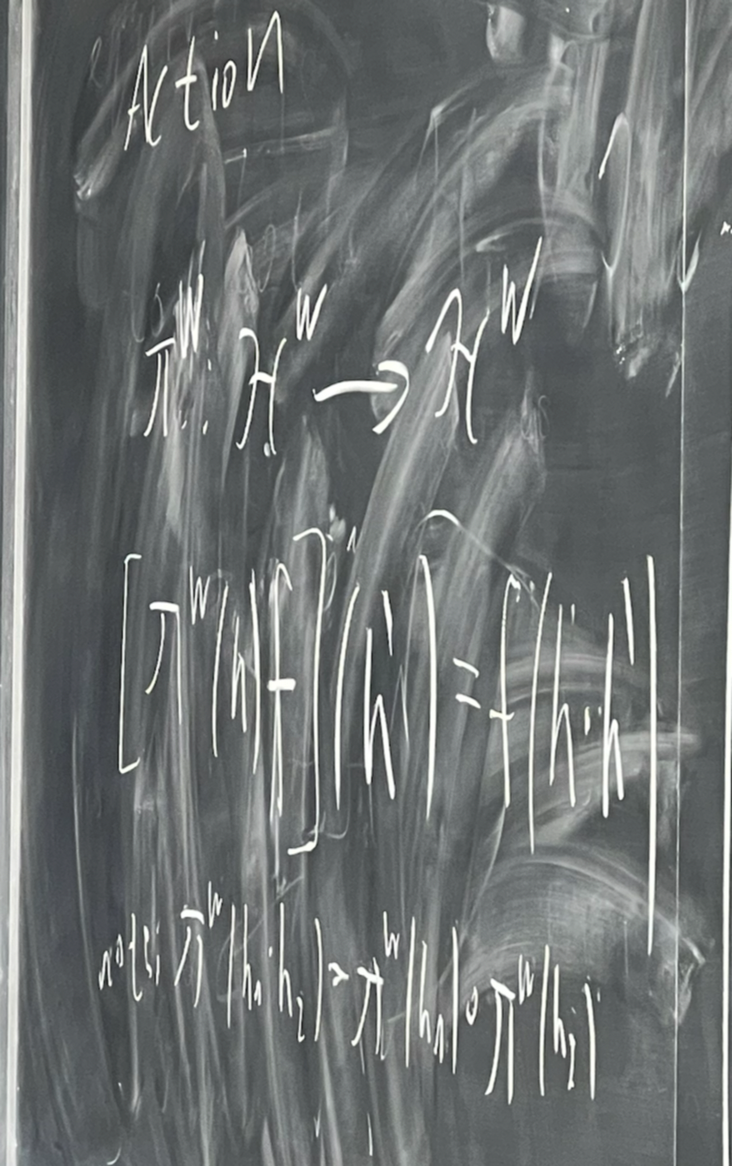 Action
π^W: H^W → H^W
[π^W(h)f](h') = f(h^{-1}·h')
note: π^W(h₁·h₂) = π^W(h₁) ∘ π^W(h₂)